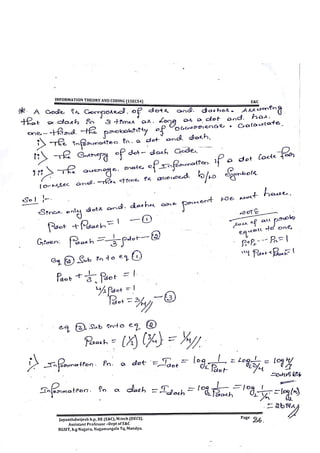 INFORMATION THEORY AND CODING (15EC54) E&C
* A Code is Composed of dots and dashes. Assuming
that a dash is 3 times as long as a dot and has
one-third the probability of occurrence. Calculate
i) The information in a dot and dash.
ii) The Entropy of dot-dash Code.
iii) The average rate of Information if a dot lasts for
10-msec and this time is allowed b/w Symbols
Sol:-
Since only dots and dashes are present we must have,
Pdot + Pdash = 1 — ①
Given: Pdash = 1/3 Pdot — ②
NOTE
Sum of all probs
equals to one,
P1+P2 ... Pn = 1
Pdot + Pdash = 1
eq ② Sub in to eq ①
Pdot + 1/3 Pdot = 1
4/3 Pdot = 1
Pdot = 3/4 — ③
eq ③ Sub in to eq ②
Pdash = (1/3) (3/4) = 1/4
i) Information in a dot = Idot = log 1/Pdot = log 1/(3/4) = log 4/3
Information in a dash = Idash = log 1/Pdash = log 1/(1/4) = log(4)
= 2 bits
Page 26
Assistant Professor -Dept of E&C
BGSIT, b.g Nagara, Nagamangala Tq, Mandya.